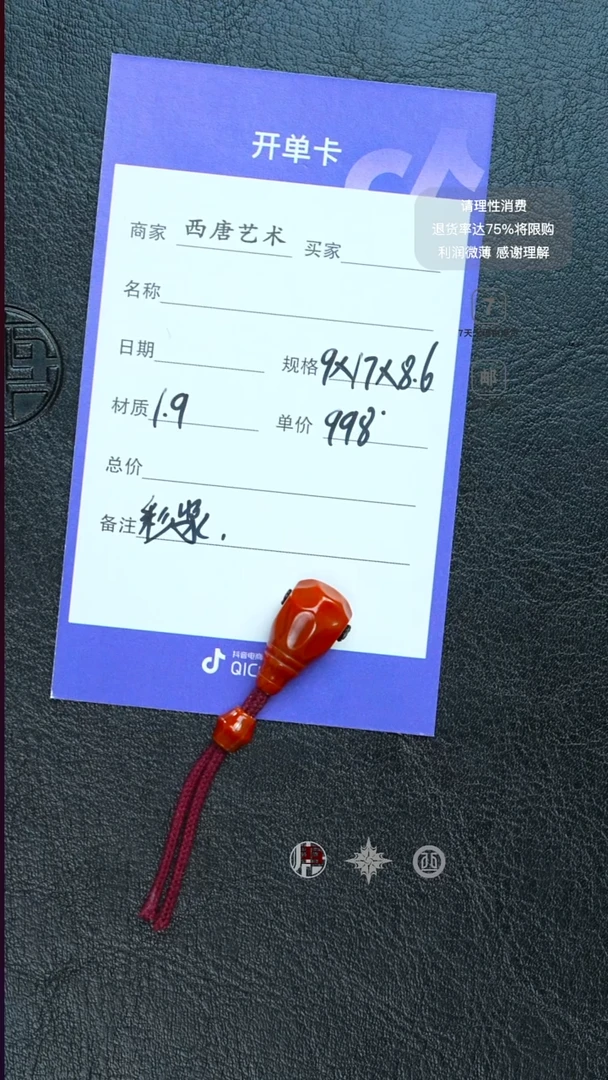 开单卡
请理性消费
退货率达75%将限购
利润微薄 感谢理解
商家 西唐艺术 买家
名称
日期 规格 9X17X8.6
材质 1.9 单价 998
总价
备注
抖音电商
QIC
邮